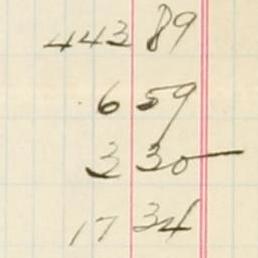 443 89
6 59
3 30
17 34